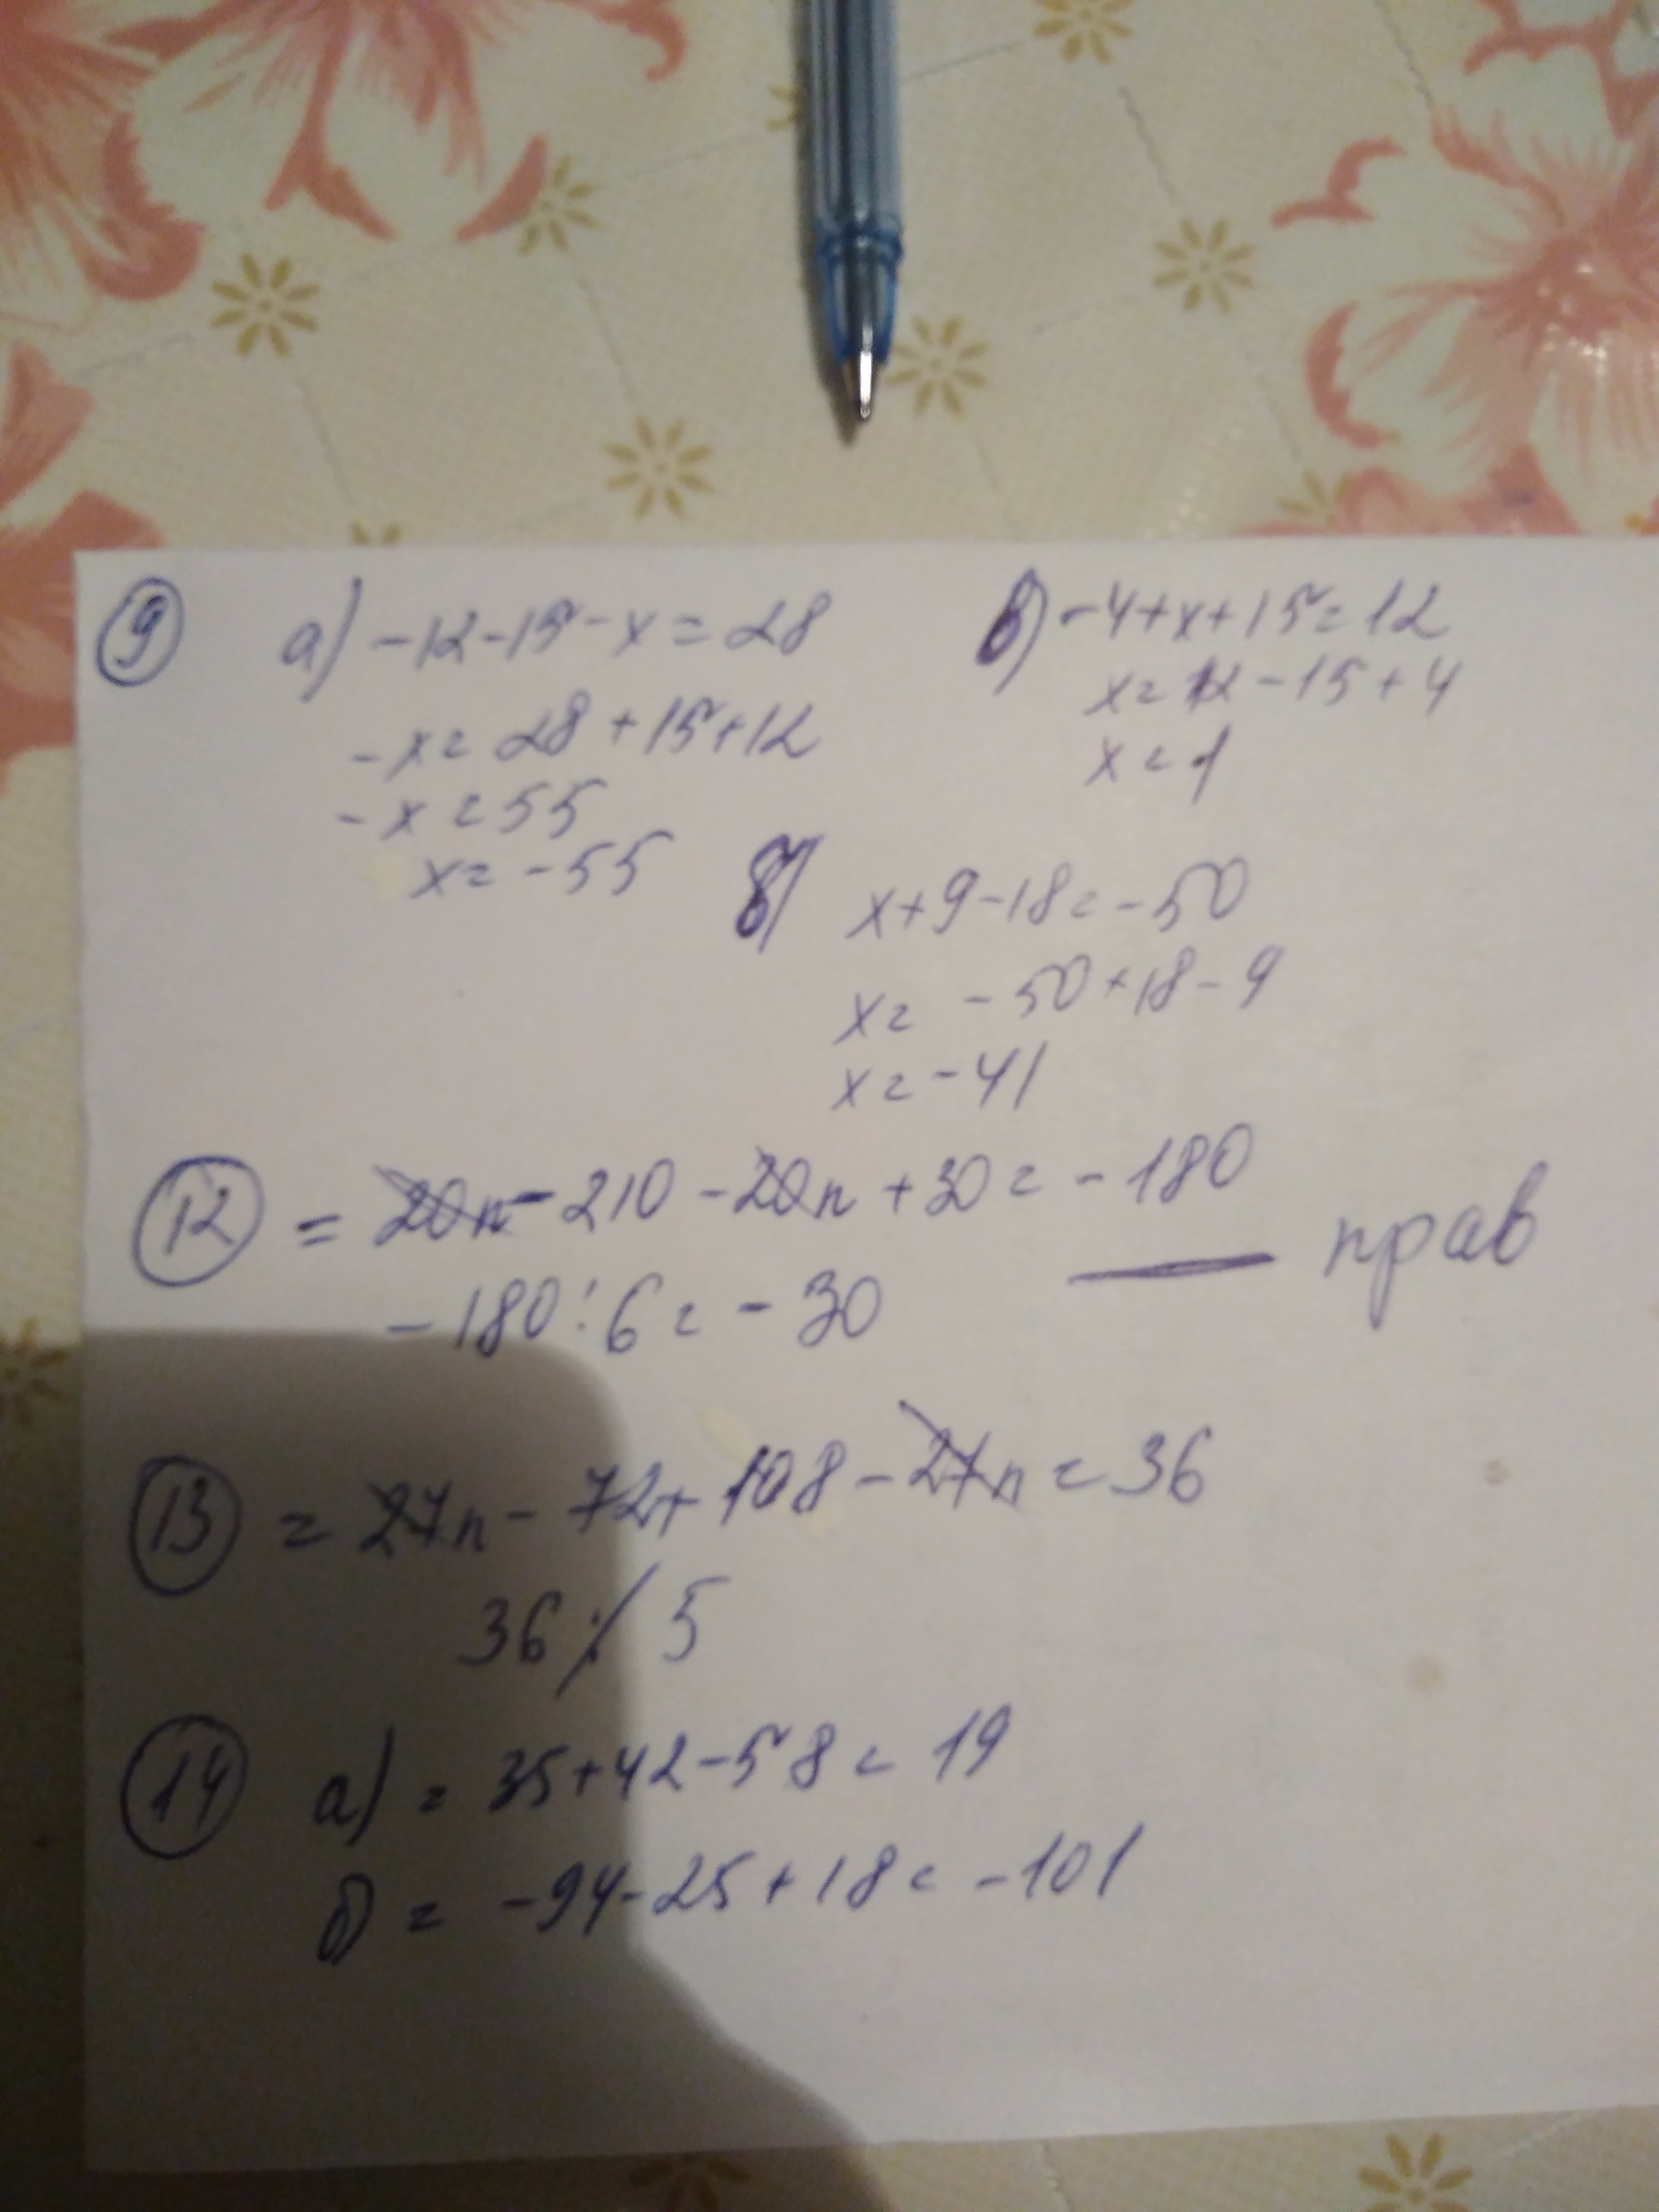 9 а) -12-15-x=28
-x=28+15+12
-x=55
x=-55
в) -4+x+15=12
x=12-15+4
x=1
б) x+9-18=-50
x=-50+18-9
x=-41
12 = 20n-210-20n+30=-180 прав
-180:6=-30
13 = 27n-72+108-27n=36
36 :/ 5
14 а) = 35+42-58=19
б) = -94-25+18=-101